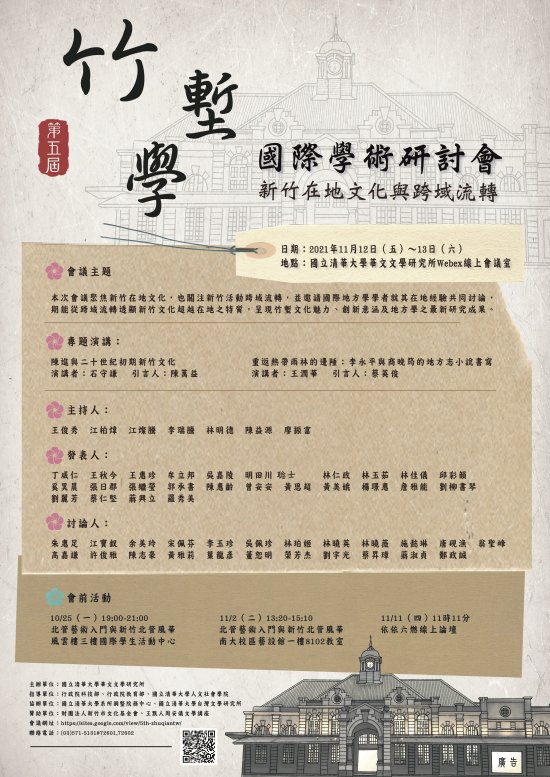 竹塹學
第五屆
國際學術研討會
新竹在地文化與跨域流轉
日期：2021年11月12日（五）～13日（六）
地點：國立清華大學華文文學研究所Webex線上會議室
會議主題
本次會議聚焦新竹在地文化，也關注新竹活動跨域流轉，並邀請國際地方學學者就其在地經驗共同討論，
期能從跨域流轉透顯新竹文化超越在地之特質，呈現竹塹文化魅力、創新意涵及地方學之最新研究成果。
專題演講：
陳進與二十世紀初期新竹文化
演講者：石守謙　引言人：陳萬益
重返熱帶雨林的邊陲：李永平與商晚筠的地方志小說書寫
演講者：王潤華　引言人：蔡英俊
主持人：
王俊秀　江柏煒　江燦騰　李瑞騰　林明德　陳益源　廖振富
發表人：
丁威仁　王秋今　王惠珍　牟立邦　吳嘉陵　明田川聡士　林仁政　林玉茹　林佳儀　邱彩韻
張日郡　張繼瑩　郭永喜　陳惠齡　曾安安　黃思超　黃美娥　楊璟惠　詹雅能　劉柳書琴
劉麗芳　蔡仁堅　蔣興立　羅秀美
討論人：
朱惠足　江寶釵　余美玲　宋佩芬　李玉珍　吳佩珍　林珀姬　林曉英　林曉薇　施懿琳　唐硯漁　翁聖峰
高嘉謙　許俊雅　陳志豪　黃雅莉　葉龍彥　董恕明　榮芳杰　劉宇光　蔡昇璋　蔣淑貞　鄭政誠
會前活動
10/25（一）19:00-21:00
北管藝術入門與新竹北管風華
風雲樓三樓國際學生活動中心
11/2（二）13:20-15:10
北管藝術入門與新竹北管風華
南大校區藝設館一樓8102教室
11/11（四）11時11分
依依六燃線上論壇
主辦單位：國立清華大學華文文學研究所
指導單位：行政院科技部、行政院教育部、國立清華大學人文社會學院
協辦單位：國立清華大學系所調整院務中心、國立清華大學台灣文學研究所
贊助單位：財團法人新竹市文化基金會、王默人周安儀文學講座
會議網址：https://sites.google.com/view/5th-zhuqiantw/
聯絡電話：(03)571-5131#72601,72602
廣告